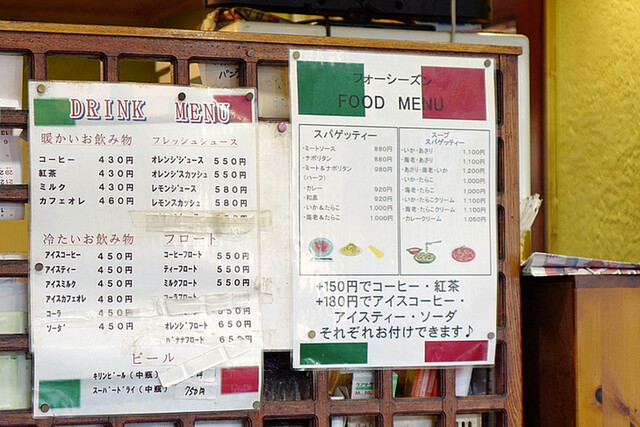 パン
DRINK MENU
暖かいお飲み物
コーヒー 430円
紅茶 430円
ミルク 430円
カフェオレ 460円
フレッシュジュース
オレンジジュース 550円
オレンジスカッシュ 550円
レモンジュース 580円
レモンスカッシュ 580円
冷たいお飲み物
アイスコーヒー 450円
アイスティー 450円
アイスミルク 450円
アイスカフェオレ 480円
コーラ 450円
ソーダ 450円
フロート
コーヒーフロート 550円
ティーフロート 550円
ミルクフロート 550円
コーラフロート
オレンジフロート 650円
バナナフロート 650円
ビール
キリンビール (中瓶) 円
スーパードライ (中瓶) 750円
フォーシーズン
FOOD MENU
スパゲッティー
・ミートソース 880円
・ナポリタン 880円
・ミート&ナポリタン 980円
(ハーフ)
・カレー 920円
・和風 920円
・いか&たらこ 1,000円
・海老&たらこ 1,000円
スープ
スパゲッティー
・いか・あさり 1,100円
・海老・あさり 1,100円
・あさり・海老・いか 1,200円
・いか・たらこ 1,000円
・海老・たらこ 1,000円
・いか・たらこクリーム 1,100円
・海老・たらこクリーム 1,100円
・カレークリーム 1,050円
+150円でコーヒー・紅茶
+180円でアイスコーヒー・
アイスティー・ソーダ
それぞれお付けできます♪